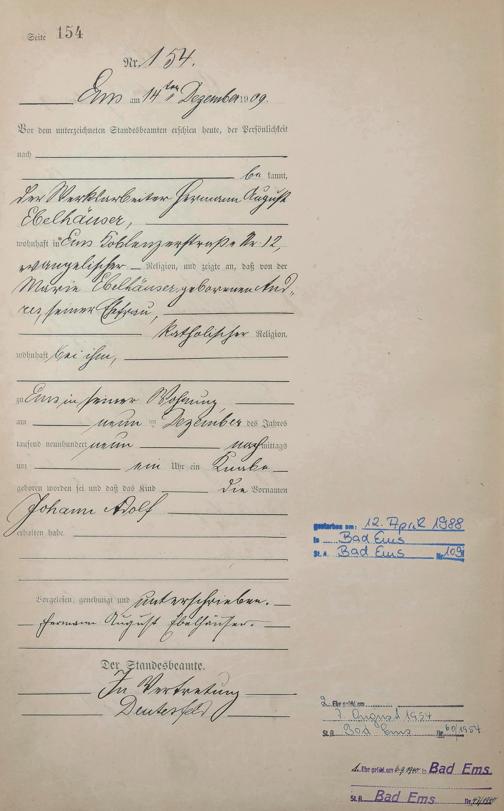 Seite 154
Nr. 154.
Ems am 14ten Dezember 1909.
Vor dem unterzeichneten Standesbeamten erschien heute, der Persönlichkeit
nach
be kannt,
der Werksarbeiter Hermann August
Ebelhäuser,
wohnhaft in Ems Coblenzerstraße Nr. 12,
evangelischer Religion, und zeigte an, daß von der
Marie Ebelhäuser, geborenen And-
res, seiner Ehefrau,
katholischer Religion,
wohnhaft bei ihm,
zu Ems in seiner Wohnung
am neun ten Dezember des Jahres
tausend neunhundert neun nach mittags
um ein Uhr ein Knabe
geboren worden sei und daß das Kind die Vornamen
Johann Adolf
erhalten habe.
Vorgelesen, genehmigt und unterschrieben.
Hermann August Ebelhäuser.
Der Standesbeamte.
In Vertretung
gestorben am: 12. April 1988
in Bad Ems
St. A. Bad Ems Nr. 109
2. Ehe geschl. am
7. August 1954
St. A. Bad Ems Nr. 60/1954
1. Ehe geschl. am in Bad Ems
St. A. Bad Ems Nr.